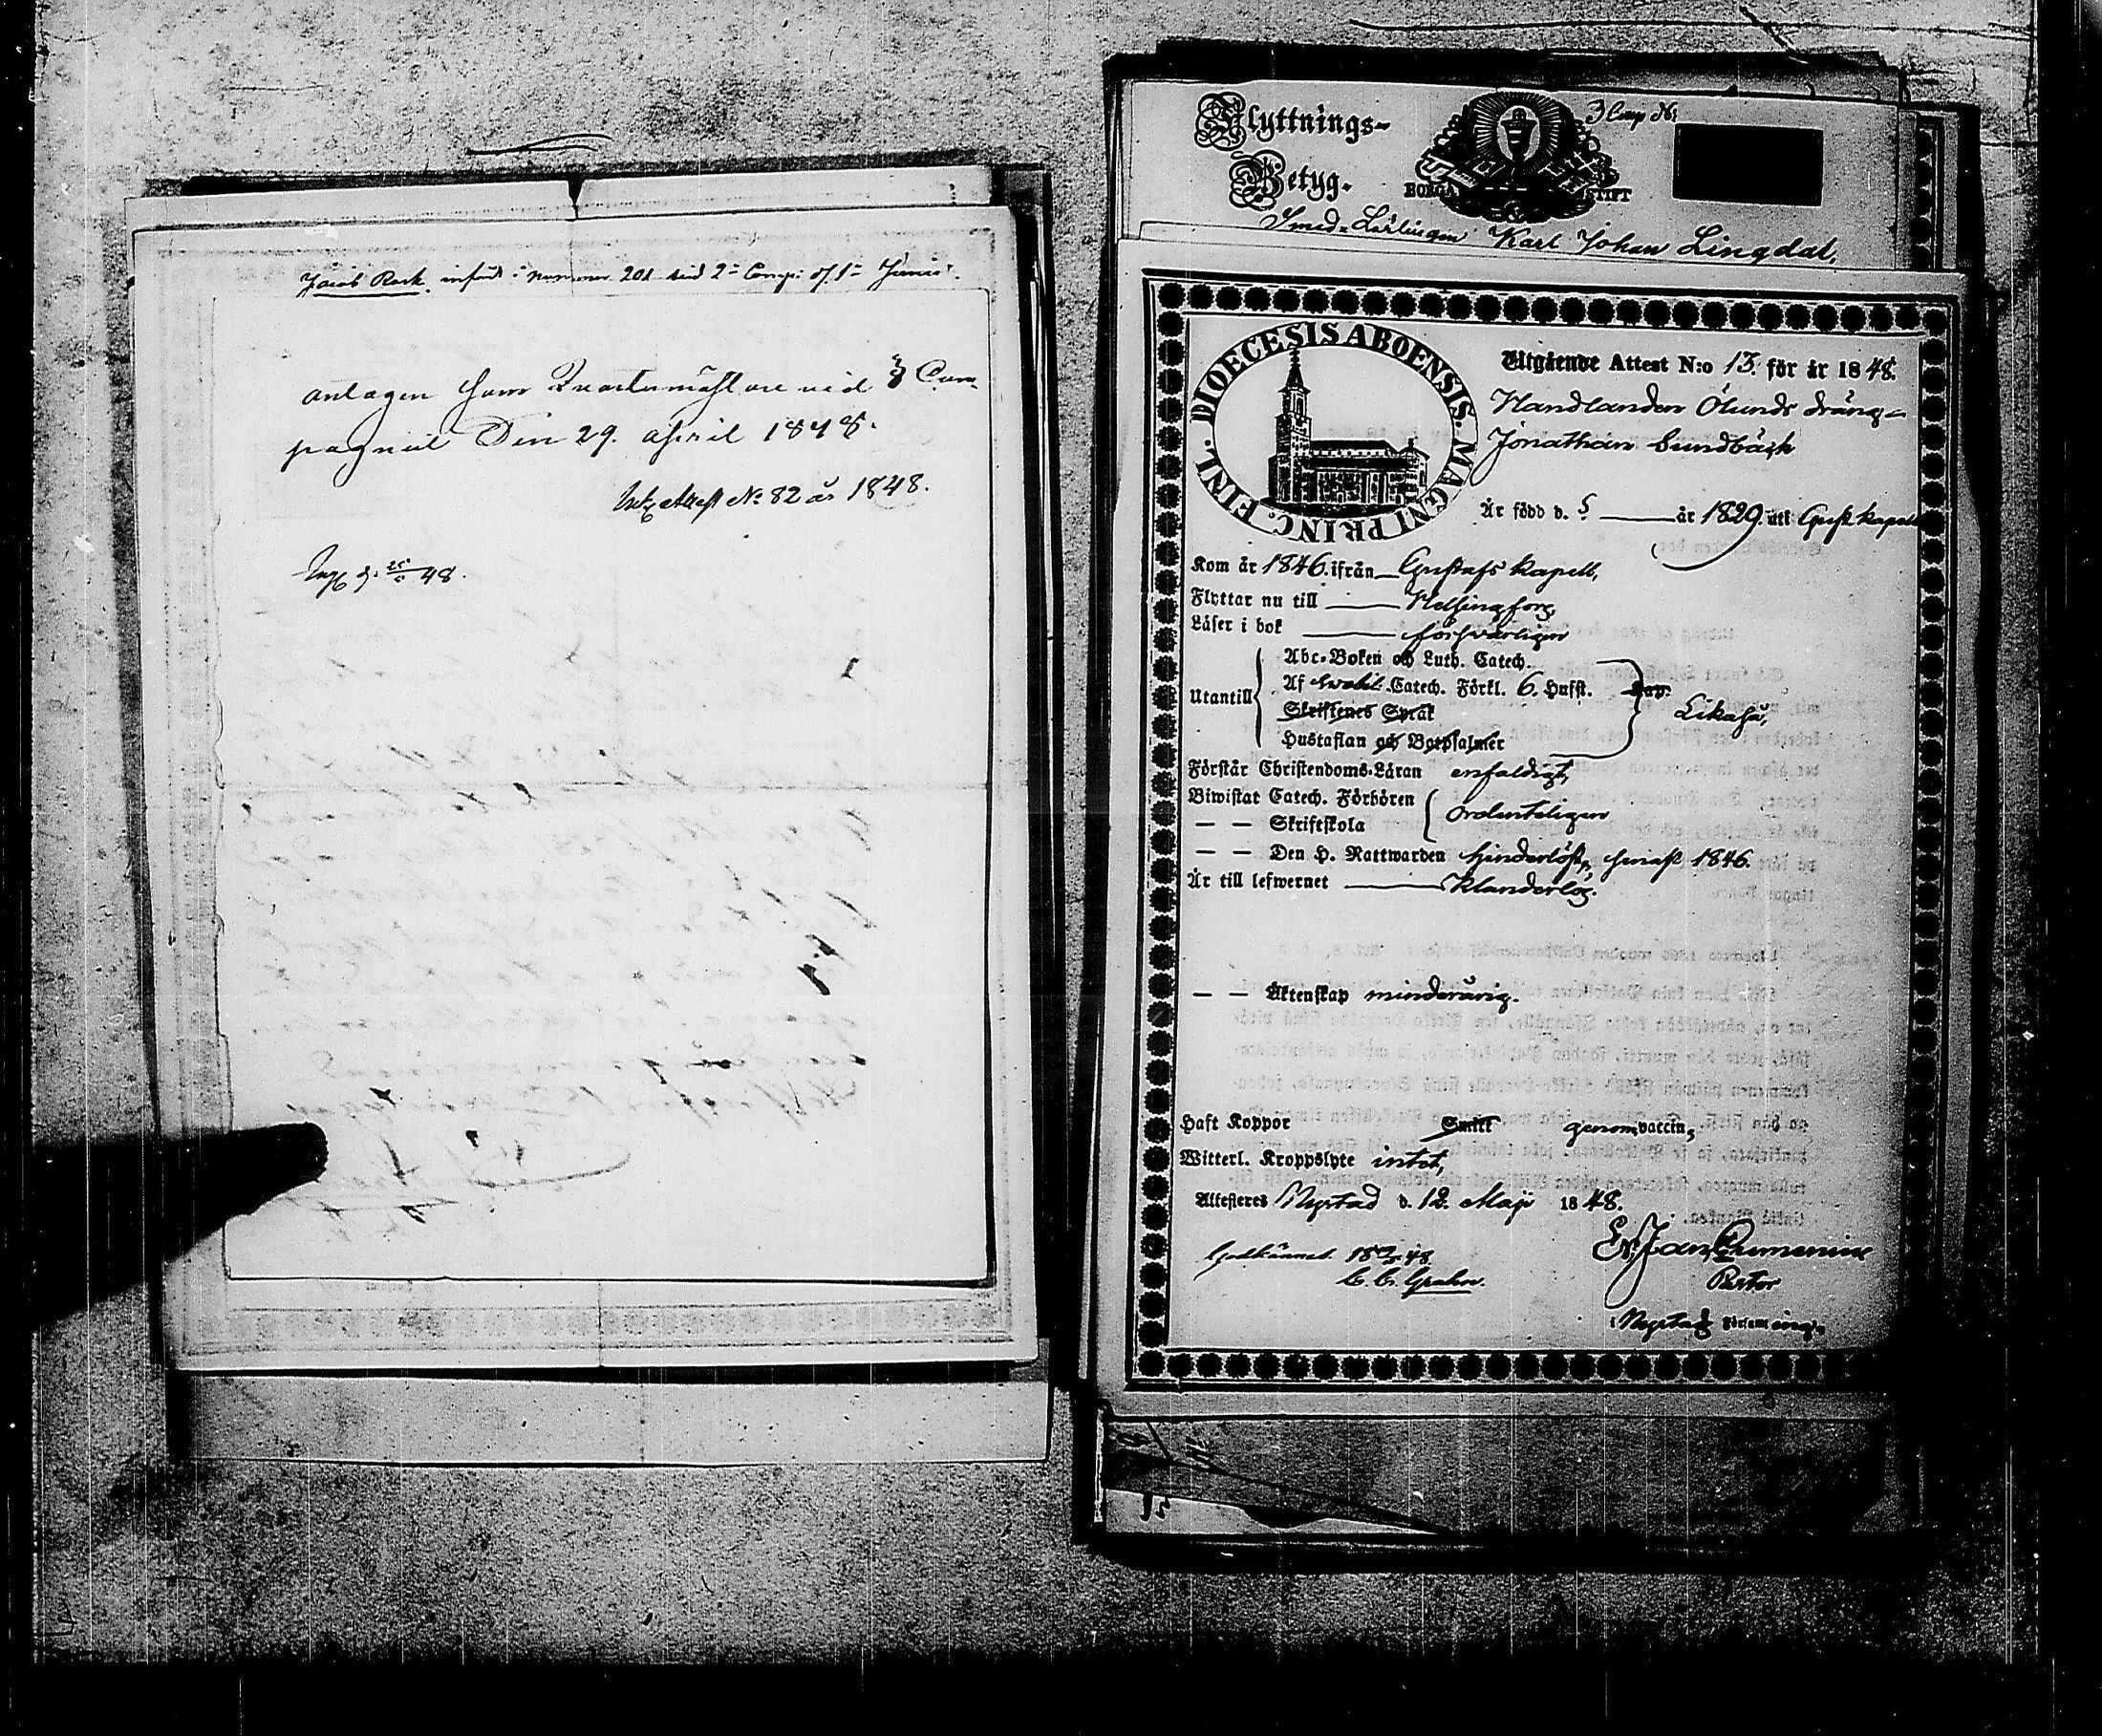 Jacob Rask införd i nummer 201 vid 2:a Comp: af 1:a
antagen som Quartermästare vid 3 Com-
pagniet Den 29. April 1848.
attest No 82 år 1848.
48.
Flyttnings-
Betyg.
3 Comp No
BORGÅ STIFT
Smed-Lärlingen Karl Johan Lingdal,
DIOECESIS ABOENSIS. MAGNI PRINC. FINL.
Utgående Attest N:o 13. för år 1848.
Handlanden Ölunds dräng
Jonathan Sundbäck
Är född d. 5 år 1829. uti Gust. kapell
Kom år 1846. ifrån Gustafs kapell,
Flyttar nu till Helsingfors,
Läser i bok försvarligen
Abc-Boken och Luth. Catech.
Utantill Af Swebil. Catech. Förkl. 6. Hufst. Cap.
Skriftenes Språk
Likaså,
Hustaflan och Botpsalmer
Förstår Christendoms-Läran enfaldigt,
Biwistat Catech. Förhören
ordenteligen
— — Skriftskola
— — Den H. Nattwarden hinderlöst, senast 1846.
Är till lefwernet klanderlös.
— — Äktenskap minderårig.
Haft Koppor Smitt genom vaccin,
Witterl. Kroppslyte intet,
Attesteras Nystad d. 12. Maji 1848.
Godkännes 48.
C. G. Grahn.
Pastor
i Nystad Församling.